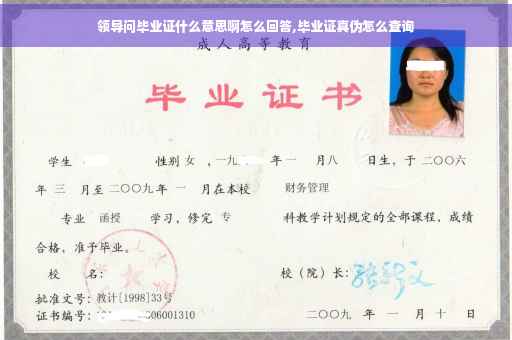 领导问毕业证什么意思啊怎么回答,毕业证真伪怎么查询
成人高等教育
毕业证书
学生 性别 女 ,一九 年一 月八 日生，于二〇〇六
年 三 月至二〇〇九年 一 月在本校 财务管理
专业 函授 学习，修完 专 科教学计划规定的全部课程，成绩
合格，准予毕业。
校 名： 校（院）长：
批准文号：教计[1998]33号
证书编号： 06001310 二〇〇九 年 一 月 十 日